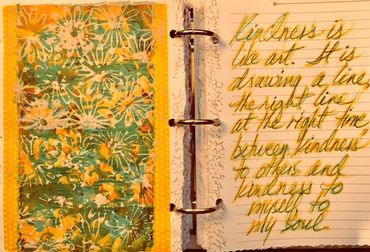 Kindness is
like art. It is
drawing a line,
the right line
at the right time
between kindness
to others and
kindness to
myself to
my soul.